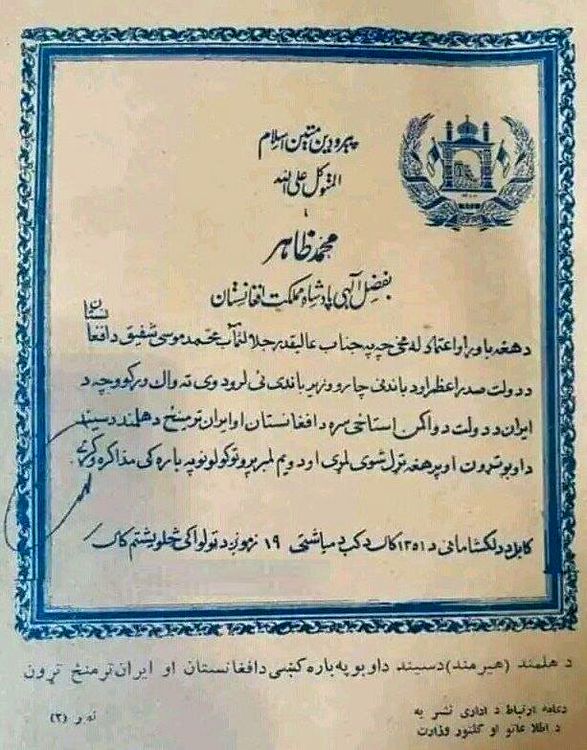 پیرو دین متین اسلام
المتوکل علی الله
محمد ظاهر
بفضل آلهی پادشاه مملکت افغانستان
د هغه باور او اعتماد له مخی چه په جناب عالیقدر جلالتمآب محمد موسی شفیق د افغانستان
د دولت صدراعظم او د باندنی چارو وزیر باندی ئی لرو دوی ته واک ورکوو چه د
ایران د دولت د واکمن استاځی سره د افغانستان او ایران ترمنځ د هلمند د سیند
د اوبو تړون او پر هغه تړل شوی لمړی او دویم لمبر پروتوکولونو په باره کی مذاکره وکړی
کابل د دلکشا مانی د ۱۳۵۱ کال د کب د میاشتی ۱۹ زمونږ د ټولواکی څلویښتم کال
د هلمند (هیرمند) د سیند د اوبو په باره کښی د افغانستان او ایران ترمنځ تړون
دعامه ارتباط د اداری نشر به
د اطلاعاتو او کلتور وزارت
نمبر (۳)